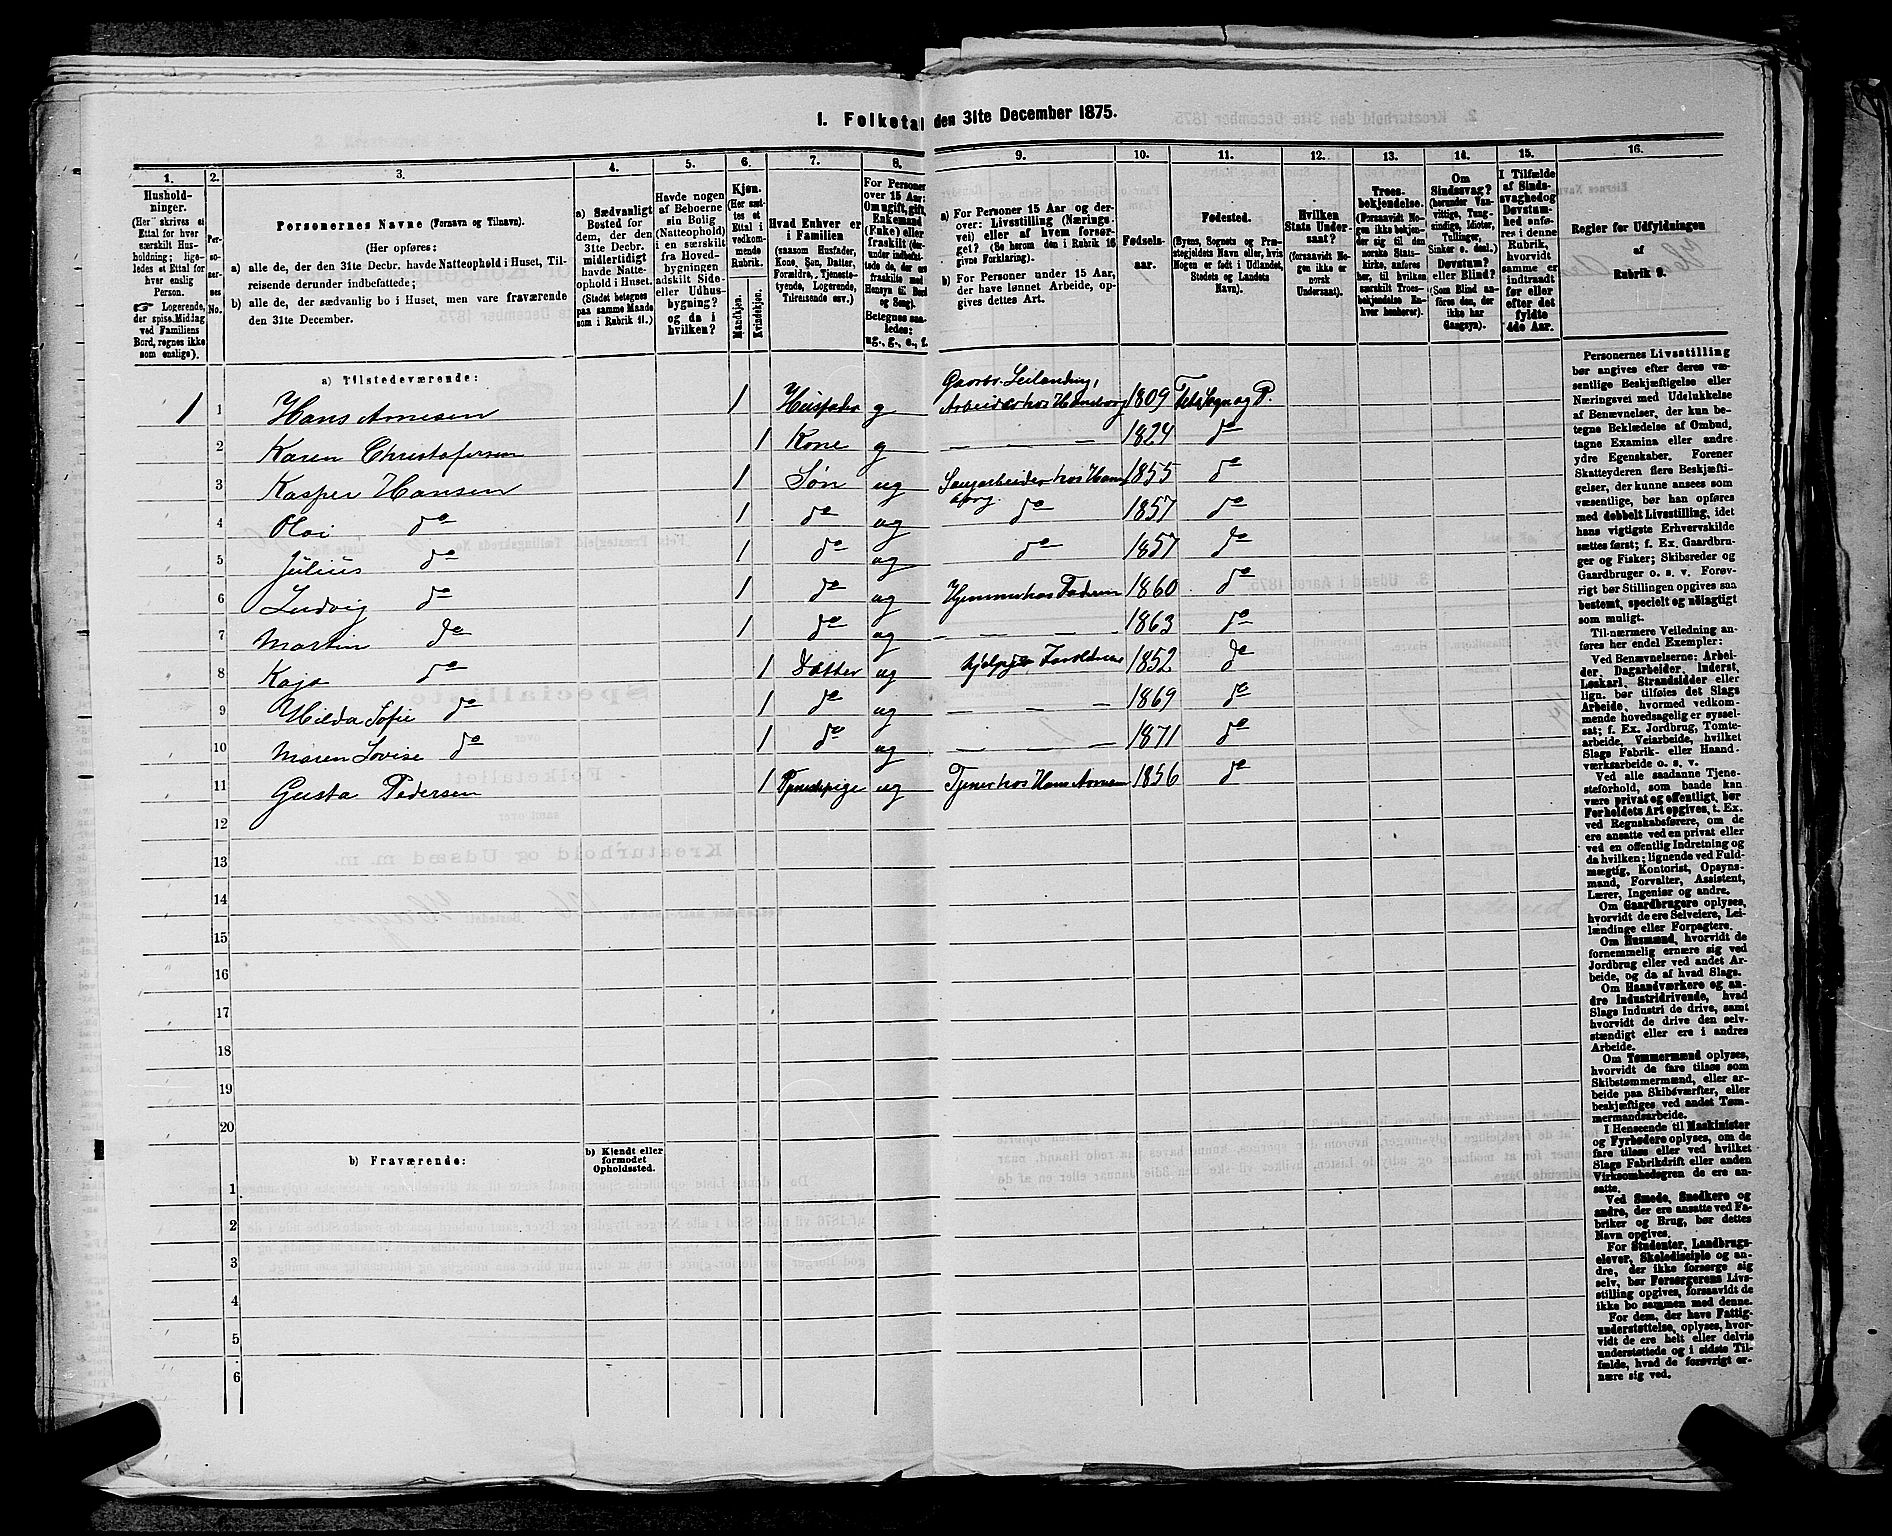 1. Folketal den 31te December 1875.
1. 2. 3. 4. 5. 6. 7. 8. 9. 10. 11. 12. 13. 14. 15. 16.
Hushold-
ninger.
(Her skrives et
Ettal for hver
særskilt Hus-
holdning; lige-
ledes et Ettal for
hver enslig
Person.
☞ Logerende,
der spise Middag
ved Familiens
Bord, regnes ikke
som enslige).
Per-
soner-
nes
No.
Personernes Navne (Fornavn og Tilnavn).
(Her opføres:
a) alle de, der den 31te Decbr. havde Natteophold i Huset, Til-
reisende derunder indbefattede;
b) alle de, der sædvanlig bo i Huset, men vare fraværende
den 31te December.
a) Sædvanligt
Bosted for
dem, der den
31te Decbr.
midlertidigt
havde Natte-
ophold i Huset.
(Stedet betegnes
paa samme Maade
som i Rubrik 11.)
Havde nogen
af Beboerne
sin Bolig
(Natteophold)
i en særskilt
fra Hoved-
bygningen
adskilt Side-
eller Udhus-
bygning?
og da i
hvilken?
Kjøn.
(Her sæt-
tes et
Ettal i
vedkom-
mende
Rubrik.
Mandkjøn.
Kvindekjøn.
Hvad Enhver er
i Familien
(saasom Husfader,
Kone, Søn, Datter,
Forældre, Tjeneste-
tyende, Logerende,
Tilreisende osv.)
For Personer
over 15 Aar:
Om ugift, gift,
Enkemand
(Enke) eller
fraskilt (der-
under indbefat-
tede de, der ere
fraskilte med
Hensyn til Bord
og Seng).
Betegnes saa-
ledes:
ug., g., e., f.
a) For Personer 15 Aar og der-
over: Livsstilling (Nærings-
vei) eller af hvem forsør-
get? (Se herom den i Rubrik 16
givne Forklaring).
b) For Personer under 15 Aar,
der have lønnet Arbeide, op-
gives dettes Art.
Fødsels-
aar.
Fødested.
(Byens, Sognets og Præ-
stegjeldets Navn eller, hvis
Nogen er født i Udlandet,
Stedets og Landets
Navn).
Hvilken
Stats Under-
saat?
(forsaavidt No-
gen ikke er
norsk
Undersaat).
Troes-
bekjendelse.
(Forsaavidt No-
gen ikke bekjen-
der sig til den
norske Stats-
kirke, anføres
her, til hvilken
særskilt Troes-
bekjendelse En-
hver henhører).
Om
Sindssvag?
(herunder Van-
vittige, Tung-
sindige, Idioter,
Tullinger,
Sinker o. desl.)
Døvstum?
eller Blind?
(Som Blind an-
føres den, der
ikke har
Gangsyn).
I Tilfælde
af Sinds-
svaghed og
Døvstum-
hed anfø-
res i denne
Rubrik,
hvorvidt
samme er
indtraadt
før eller
efter det
fyldte
4de Aar.
Regler for Udfyldningen
af
Rubrik 9.
a) Tilstedeværende:
1 1 Hans Arnesen 1 Husfader g Gaardbr. Leilænding, Arbeider hos 1809 Fets Sogn og P.
2 Karen Christofersen 1 Kone g — — — 1824 do
3 Kasper Hansen 1 Søn ug Saugarbeider hos 1855 do
4 do 1 do ug do 1857 do
5 Julius do 1 do ug do 1857 do
6 Ludvig do 1 do ug Hjemme hos Faderen 1860 do
7 Martin do 1 do ug — — — — 1863 do
8 Kaja do 1 Datter ug hjelper Forældrene 1852 do
9 Hilda Sofie do 1 do ug — — — 1869 do
10 Maren Lovise do 1 do ug — — — 1871 do
11 Gusta Pedersen 1 Tjenestepige ug Tjener hos Hans Arnesen 1856 do
12
13
14
15
16
17
18
19
20
b) Fraværende:
b) Kjendt eller
formodet
Opholdssted.
1
2
3
4
5
6
Personernes Livsstilling
bør angives efter deres væ-
sentlige Beskjæftigelse eller
Næringsvei med Udelukkelse
af Benævnelser, der kun be-
tegne Beklædelse af Ombud,
tagne Examina eller andre
ydre Egenskaber. Forener
Skatteyderen flere Beskjæfti-
gelser, der kunne ansees som
væsentlige, bør han opføres
med dobbelt Livsstilling, idet
hans vigtigste Erhvervskilde
sættes først; f. Ex. Gaardbru-
ger og Fisker; Skibsreder og
Gaardbruger o. s. v. Forøv-
rigt bør Stillingen opgives saa
bestemt, specielt og nøiagtigt
som muligt.
Til nærmere Veiledning an-
føres her endel Exempler:
Ved Benævnelserne: Arbei-
der, Dagarbeider, Inderst,
Løskarl, Strandsidder eller
lign. bør tilføies det Slags
Arbeide, hvormed vedkom-
mende hovedsagelig er syssel-
sat; f. Ex. Jordbrug, Tomte-
arbeide, Veiarbeide, hvilket
Slags Fabrik- eller Haand-
værksarbeide o. s. v.
Ved alle saadanne Tjene-
steforhold, som baade kan
være privat og offentligt, bør
Forholdets Art opgives, t. Ex.
ved Regnskabsførere, om de
ere ansatte ved en privat eller
ved en offentlig Indretning og
da hvilken; lignende ved Fuld-
mægtig, Kontorist, Opsyns-
mand, Forvalter, Assistent,
Lærer, Ingeniør og andre.
Om Gaardbrugere oplyses,
hvorvidt de ere Selveiere, Lei-
lændinge eller Forpagtere.
Om Husmænd, hvorvidt de
fornemmelig ernære sig ved
Jordbrug eller ved andet Ar-
beide, og da af hvad Slags.
Om Haandværkere og an-
dre Industridrivende, hvad
Slags Industri de drive, samt
hvorvidt de drive den selv-
stændigt eller ere i andres
Arbeide.
Om Tømmermænd oplyses,
hvorvidt de fare tilsøs som
Skibstømmermænd, eller ar-
beide paa Skibsværfter, eller
beskjæftiges ved andet Tøm-
mermandsarbeide.
I Henseende til Maskinister
og Fyrbødere oplyses, om de
fare tilsøs eller ved hvilket
Slags Fabrikdrift eller anden
Virksomhedsgren de ere an-
satte.
Ved Smede, Snedkere og
andre, der ere ansatte ved Fa-
briker og Brug, bør dettes
Navn opgives.
For Studenter, Landbrugs-
elever, Skoledisciple og an-
dre, der ikke forsørge sig
selv, bør Forsørgerens Livs-
stilling opgives, forsaavidt de
ikke bo sammen med denne.
For dem, der have Fattig-
understøttelse, oplyses, hvor-
vidt de ere helt eller delvis
understøttede og i sidste Til-
fælde, hvad de forøvrigt er-
nære sig ved.